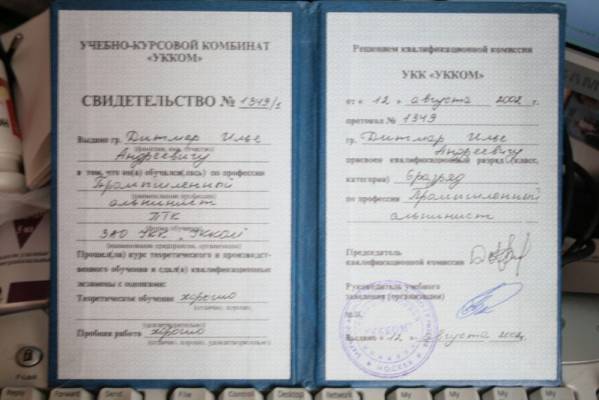 УЧЕБНО-КУРСОВОЙ КОМБИНАТ
«УККОМ»
СВИДЕТЕЛЬСТВО № 1349/1
Выдано гр. Дитмар Илье
(фамилия, имя, отчество)
Андреевичу
в том, что он(а) обучался(лась) по профессии
Промышленной
(наименование профессии)
альпинист
ПТК
ЗАО УКК „УККОМ"
(наименование предприятия, организации)
Прошел(ла) курс теоретического и производст-
венного обучения и сдал(а) квалификационные
экзамены с оценками:
Теоретическое обучение хорошо
(отлично, хорошо,
удовлетворительно)
Пробная работа хорошо
(отлично, хорошо, удовлетворительно)
Решением квалификационной комиссии
УКК «УККОМ»
от « 12 » августа 2002 г.
протокол № 1349
гр. Дитмар Илье
Андреевичу
присвоен квалификационный разряд (класс,
категория) 6разряд
по профессии Промышленный
альпинист
Председатель
квалификационной комиссии
Руководитель учебного
заведения (организации)
М.П.
Выдано « 12 » августа 2002г.
"УККОМ"
МОСКВА
F-Lock
Reply
Forward
Send
Fax
Control
Desktop
Network
My
My
My
My